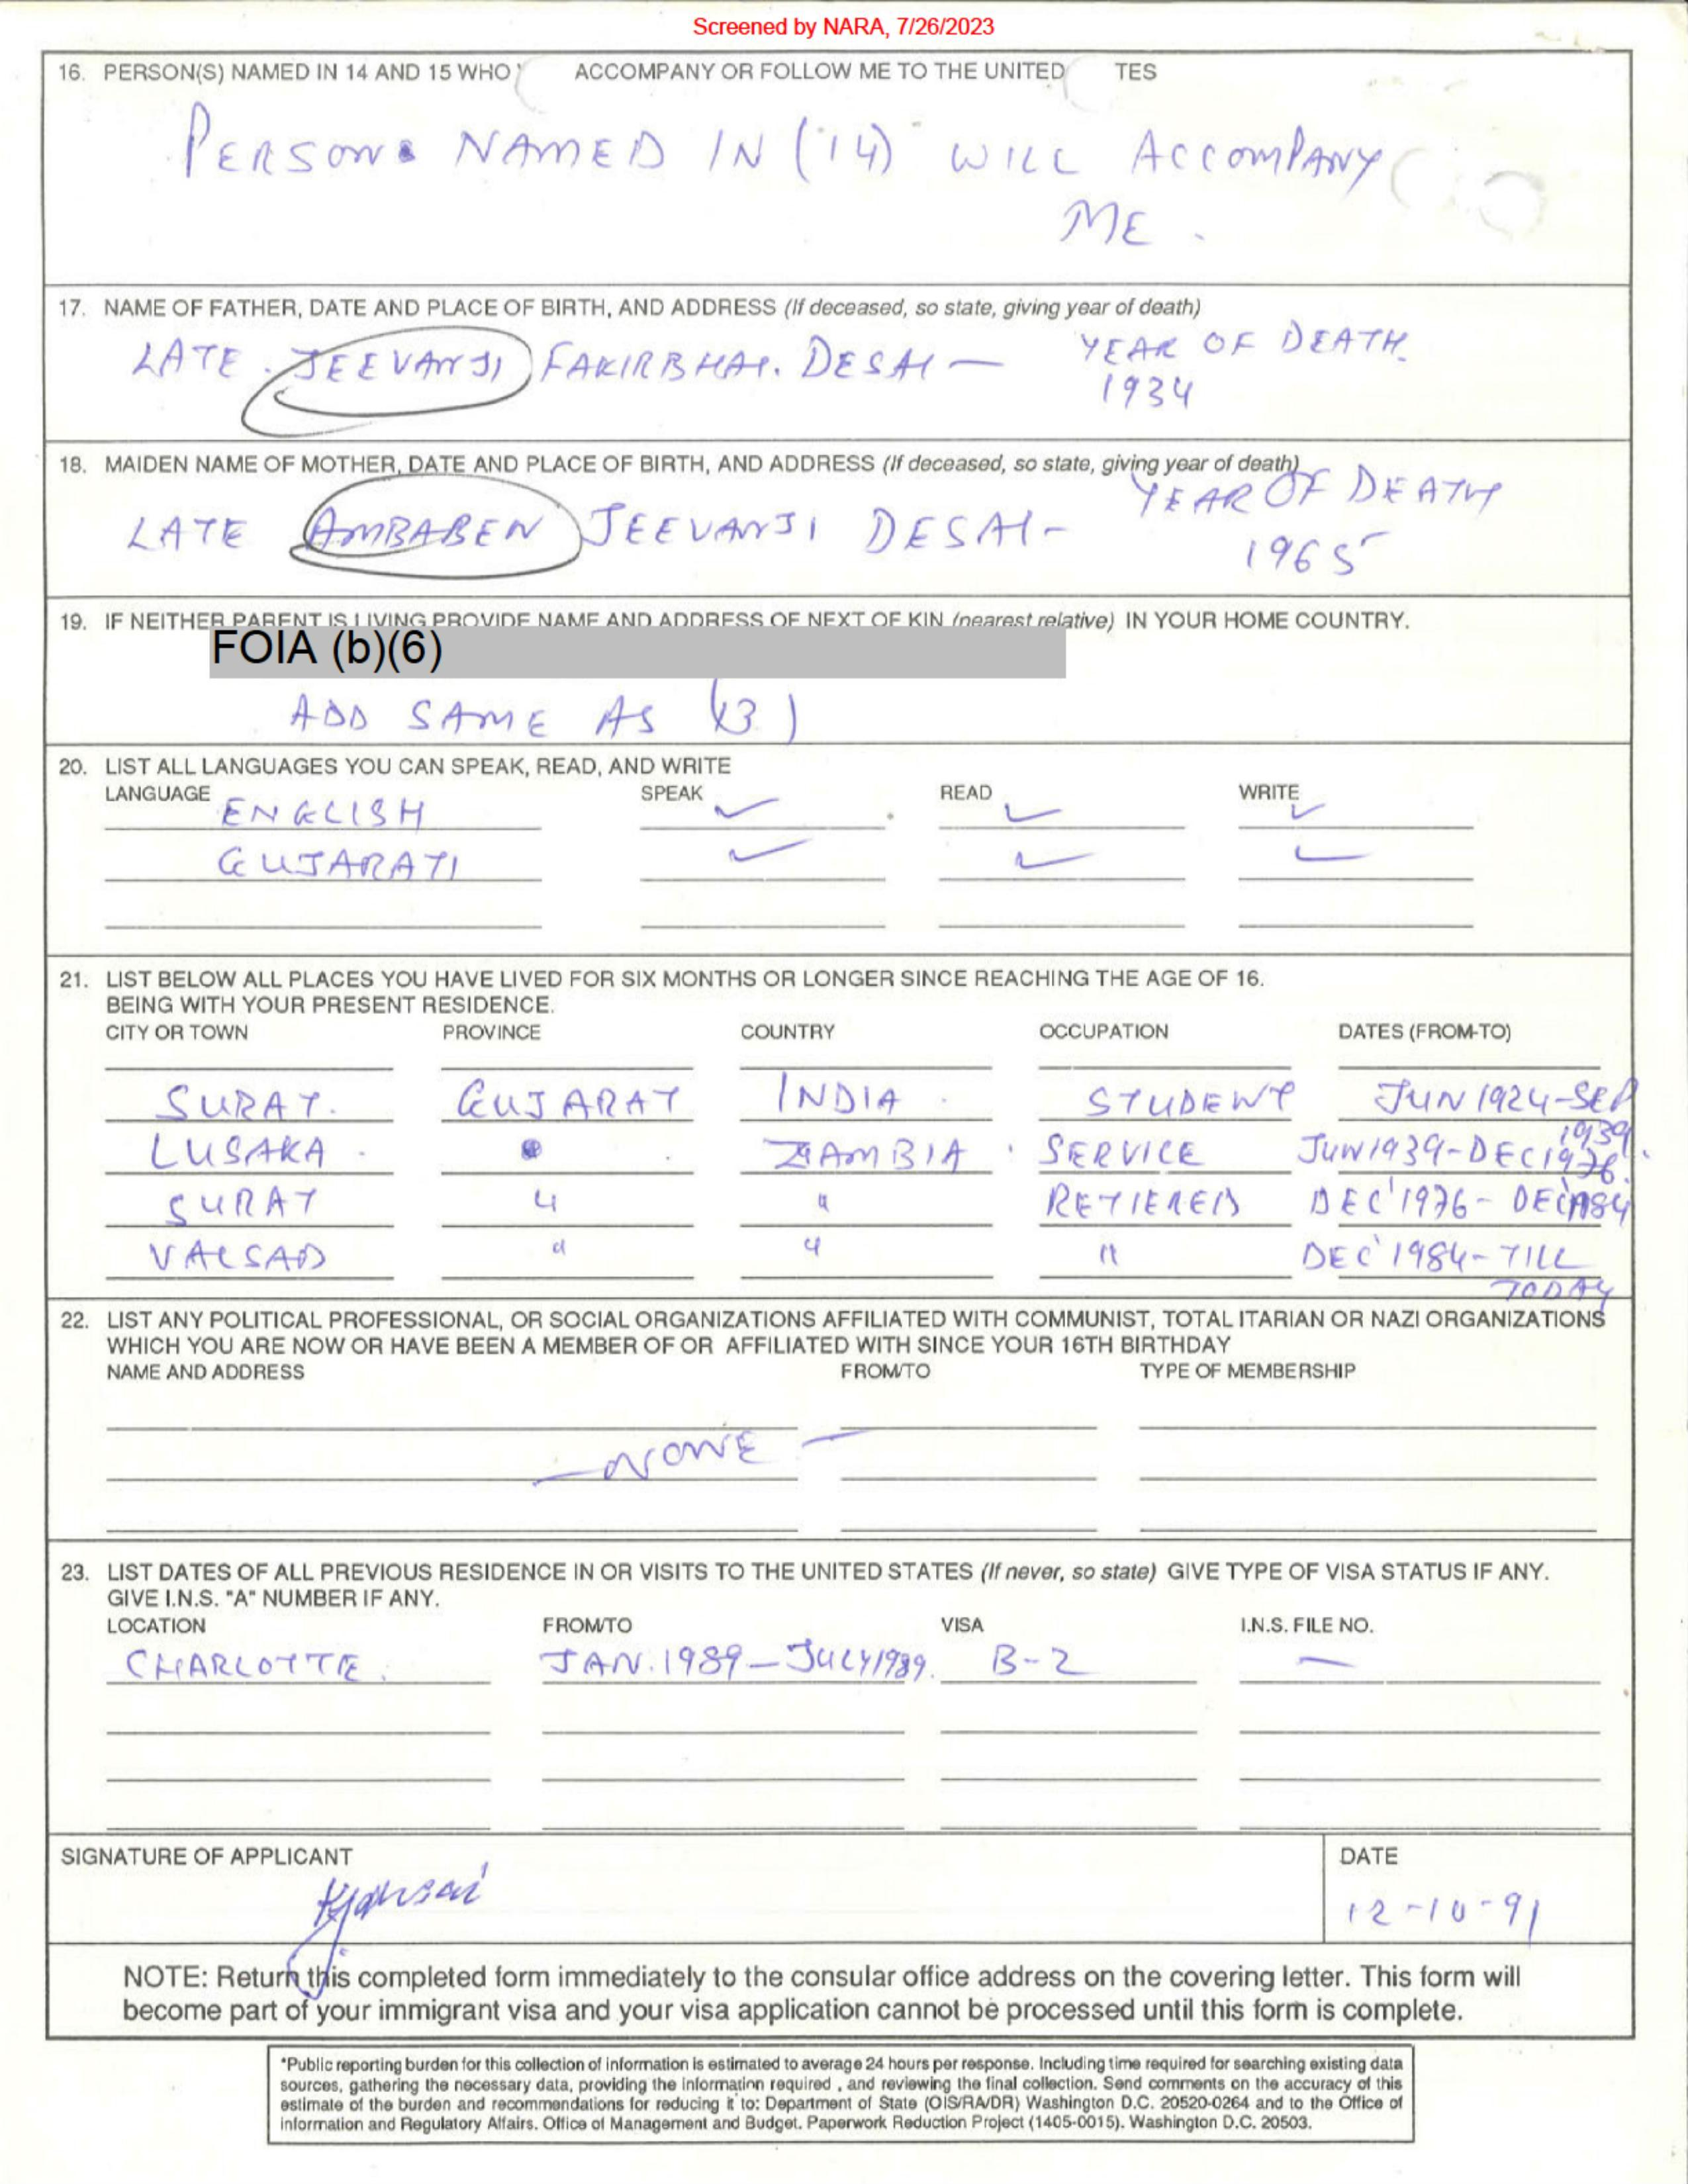 Screened by NARA, 7/26/2023
16. PERSON(S) NAMED IN 14 AND 15 WHO ACCOMPANY OR FOLLOW ME TO THE UNITED TES
PERSON NAMED IN (14) WILL ACCOMPANY
ME.
17. NAME OF FATHER, DATE AND PLACE OF BIRTH, AND ADDRESS (If deceased, so state, giving year of death)
LATE. JEEVANJI FAKIRBHAI. DESAI — YEAR OF DEATH.
1934
18. MAIDEN NAME OF MOTHER, DATE AND PLACE OF BIRTH, AND ADDRESS (If deceased, so state, giving year of death)
LATE AMBABEN JEEVANJI DESAI - YEAR OF DEATH
1965
19. IF NEITHER PARENT IS LIVING PROVIDE NAME AND ADDRESS OF NEXT OF KIN (nearest relative) IN YOUR HOME COUNTRY.
FOIA (b)(6)
ADD SAME AS (3)
20. LIST ALL LANGUAGES YOU CAN SPEAK, READ, AND WRITE
LANGUAGE SPEAK READ WRITE
ENGLISH ✓ ✓ ✓
GUJARATI ✓ ✓ ✓
21. LIST BELOW ALL PLACES YOU HAVE LIVED FOR SIX MONTHS OR LONGER SINCE REACHING THE AGE OF 16.
BEING WITH YOUR PRESENT RESIDENCE.
CITY OR TOWN PROVINCE COUNTRY OCCUPATION DATES (FROM-TO)
SURAT. GUJARAT INDIA. STUDENT JUN 1924-SEP 1939
LUSAKA. ZAMBIA. SERVICE JUN 1939-DEC 1976.
SURAT " " RETIERED DEC'1976- DEC'1984
VALSAD " " " DEC'1984-TILL
TODAY
22. LIST ANY POLITICAL PROFESSIONAL, OR SOCIAL ORGANIZATIONS AFFILIATED WITH COMMUNIST, TOTAL ITARIAN OR NAZI ORGANIZATIONS
WHICH YOU ARE NOW OR HAVE BEEN A MEMBER OF OR AFFILIATED WITH SINCE YOUR 16TH BIRTHDAY
NAME AND ADDRESS FROM/TO TYPE OF MEMBERSHIP
— NONE —
23. LIST DATES OF ALL PREVIOUS RESIDENCE IN OR VISITS TO THE UNITED STATES (If never, so state) GIVE TYPE OF VISA STATUS IF ANY.
GIVE I.N.S. "A" NUMBER IF ANY.
LOCATION FROM/TO VISA I.N.S. FILE NO.
CHARLOTTE. JAN.1989-JULY1989. B-2 —
SIGNATURE OF APPLICANT DATE
12-10-91
NOTE: Return this completed form immediately to the consular office address on the covering letter. This form will
become part of your immigrant visa and your visa application cannot be processed until this form is complete.
*Public reporting burden for this collection of information is estimated to average 24 hours per response. Including time required for searching existing data
sources, gathering the necessary data, providing the information required , and reviewing the final collection. Send comments on the accuracy of this
estimate of the burden and recommendations for reducing it to: Department of State (OIS/RA/DR) Washington D.C. 20520-0264 and to the Office of
information and Regulatory Affairs. Office of Management and Budget. Paperwork Reduction Project (1405-0015). Washington D.C. 20503.